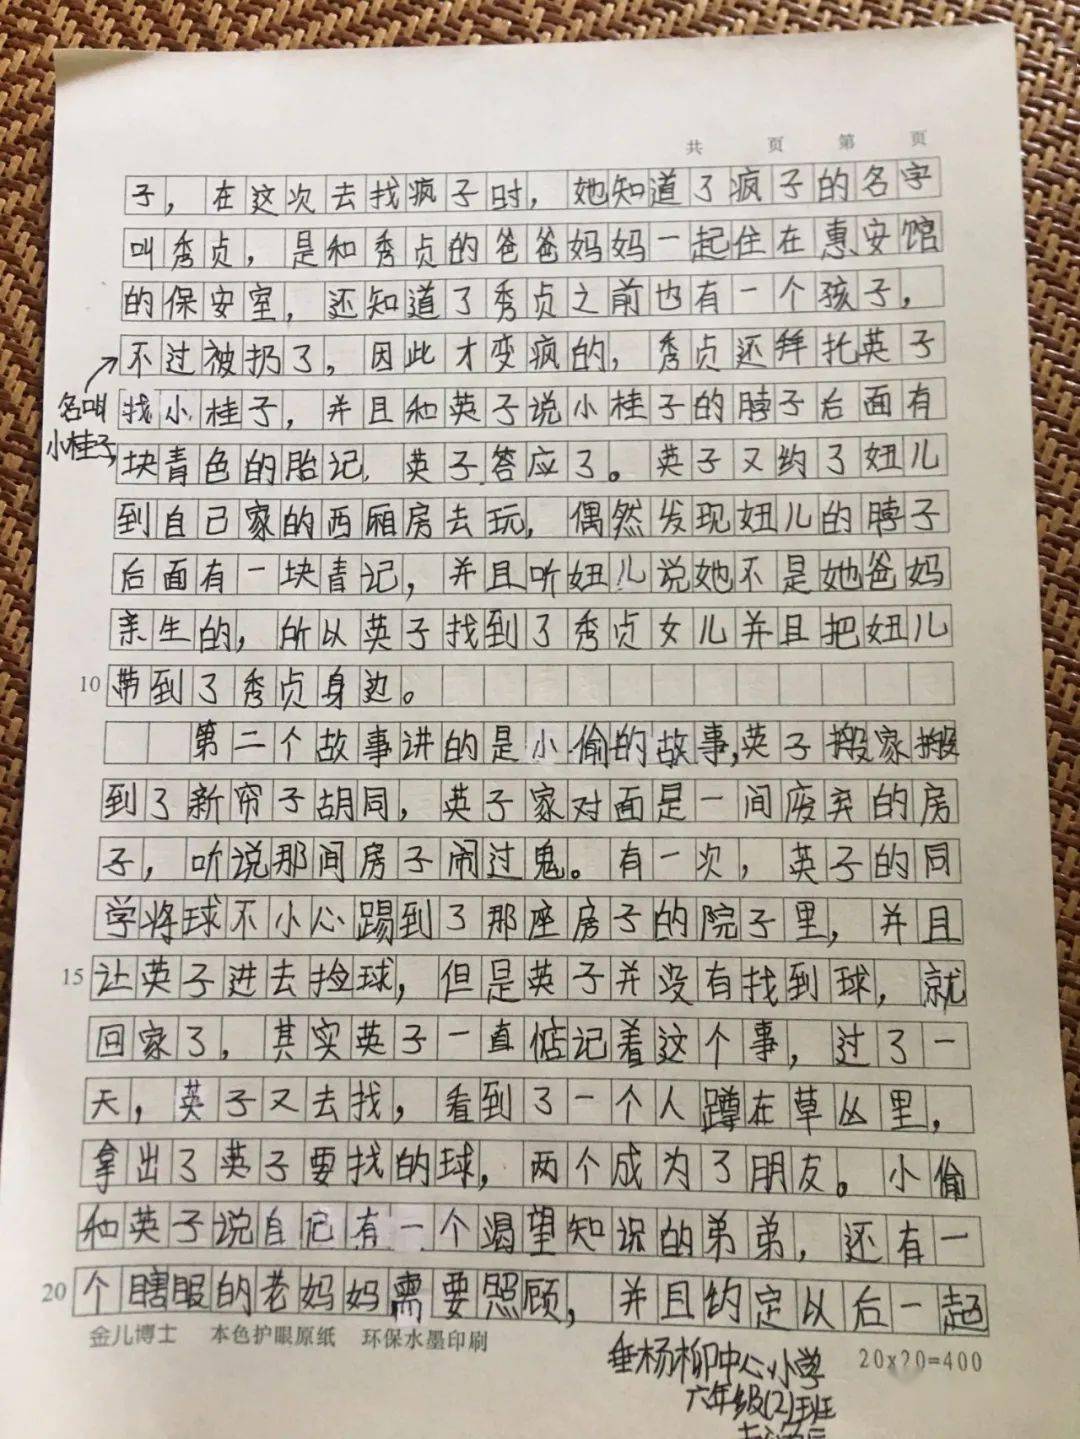 共 页 第 页
子，在这次去找疯子时，她知道了疯子的名字
叫秀贞，是和秀贞的爸爸妈妈一起住在惠安馆
的保安室，还知道了秀贞之前也有一个孩子，
不过被扔了，因此才变疯的，秀贞还拜托英子
名叫
找小桂子，并且和英子说小桂子的脖子后面有
小桂子，
块青色的胎记，英子答应了。英子又约了妞儿
到自己家的西厢房去玩，偶然发现妞儿的脖子
后面有一块青记，并且听妞儿说她不是她爸妈
亲生的，所以英子找到了秀贞女儿并且把妞儿
10 带到了秀贞身边。
第二个故事讲的是小偷的故事，英子搬家搬
到了新帘子胡同，英子家对面是一间废弃的房
子，听说那间房子闹过鬼。有一次，英子的同
学将球不小心踢到了那座房子的院子里，并且
15 让英子进去捡球，但是英子并没有找到球，就
回家了，其实英子一直惦记着这个事，过了一
天，英子又去找，看到了一个人蹲在草丛里，
拿出了英子要找的球，两个成为了朋友。小偷
和英子说自己有一个渴望知识的弟弟，还有一
20 个瞎眼的老妈妈需要照顾，并且约定以后一起
金儿博士 本色护眼原纸 环保水墨印刷
20x20=400
垂杨柳中心小学
六年级(2)班